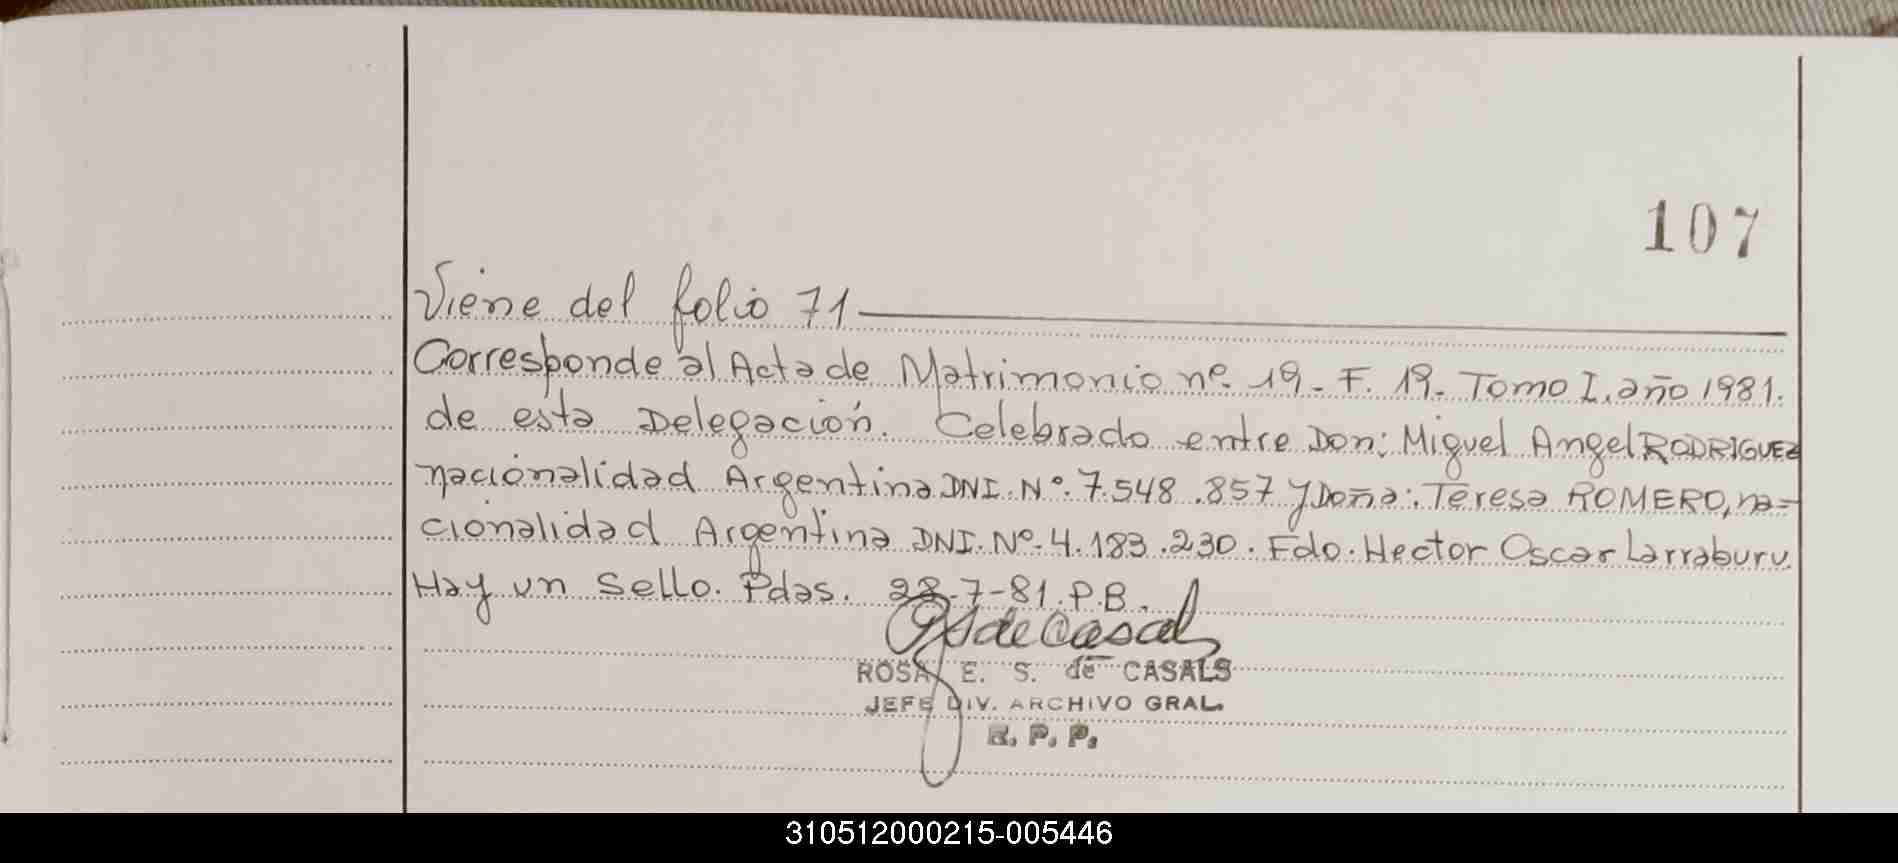 107
Viene del folio 71
Corresponde al Acta de Matrimonio nº. 19. F. 19. Tomo I. año 1981.
de esta Delegación. Celebrado entre Don: Miguel Angel RODRIGUEZ
nacionalidad Argentina DNI. Nº. 7.548.857 y Doña: Teresa ROMERO, na=
cionalidad Argentina DNI. Nº. 4.183.230. Fdo. Hector Oscar Larraburu.
Hay un sello. Pdas. 28-7-81. P.B.
de Casals
ROSA E. S. de CASALS
JEFE DIV. ARCHIVO GRAL.
R. P. P.
310512000215-005446